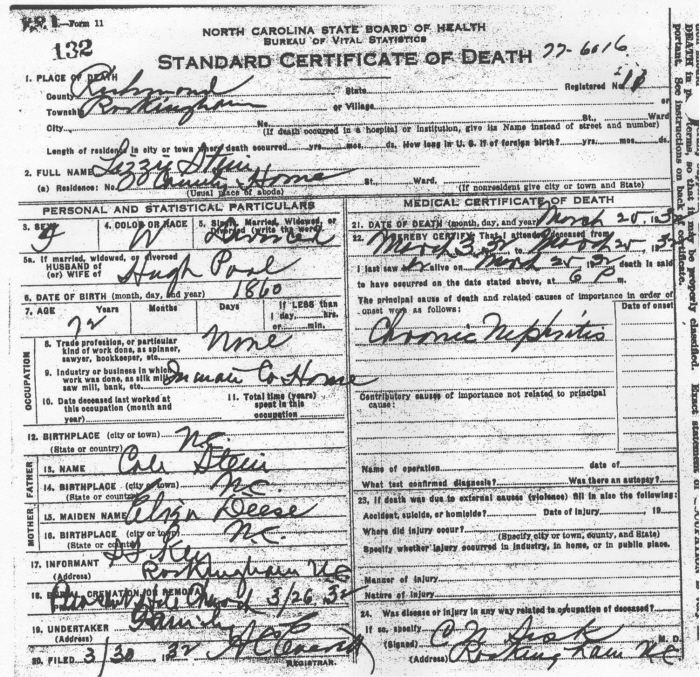 P.R.1.—Form 11
132
NORTH CAROLINA STATE BOARD OF HEALTH
BUREAU OF VITAL STATISTICS
STANDARD CERTIFICATE OF DEATH 77-6016
1. PLACE OF DEATH
County Richmond State Registered No. 18
Township Rockingham or Village or
City No. St., Ward
(If death occurred in a hospital or institution, give its Name instead of street and number)
Length of residence in city or town where death occurred yrs. mos. ds. How long in U. S. if of foreign birth? yrs. mos. ds.
2. FULL NAME Lizzie Stein
(a) Residence: No. County Home St., Ward.
(Usual place of abode) (If nonresident give city or town and State)
PERSONAL AND STATISTICAL PARTICULARS
3. SEX F 4. COLOR OR RACE W 5. Single, Married, Widowed, or Divorced (write the word) Divorced
5a. If married, widowed, or divorced
HUSBAND of
(or) WIFE of Hugh Pool
6. DATE OF BIRTH (month, day, and year) 1860
7. AGE Years 72 Months Days If LESS than
1 day, hrs.
or min.
OCCUPATION
8. Trade, profession, or particular
kind of work done, as spinner,
sawyer, bookkeeper, etc. None
9. Industry or business in which
work was done, as silk mill,
saw mill, bank, etc. Inmate Co Home
10. Date deceased last worked at
this occupation (month and
year)
11. Total time (years)
spent in this
occupation
12. BIRTHPLACE (city or town) N.C.
(State or country)
FATHER
13. NAME Cole Stein
14. BIRTHPLACE (city or town) N.C.
(State or country)
MOTHER
15. MAIDEN NAME Deese
16. BIRTHPLACE (city or town) N.C.
(State or country)
17. INFORMANT Key
(Address) Rockingham N.C
18. BURIAL, CREMATION OR REMOVAL
Church 3/26 32
19. UNDERTAKER Family
(Address)
20. FILED 3/30 1932
REGISTRAR.
MEDICAL CERTIFICATE OF DEATH
21. DATE OF DEATH (month, day, and year) March 25, 1932
22. I HEREBY CERTIFY That I attended deceased from
March 3, 32 to March 25, 1932
I last saw alive on March 25 1932 death is said
to have occurred on the date stated above, at 6 P m.
The principal cause of death and related causes of importance in order of
onset were as follows: Date of onset
Chronic Nephritis
Contributory causes of importance not related to principal
cause:
Name of operation date of
What test confirmed diagnosis? Was there an autopsy?
23. If death was due to external causes (violence) fill in also the following:
Accident, suicide, or homicide? Date of injury 19
Where did injury occur?
(Specify city or town, county, and State)
Specify whether injury occurred in industry, in home, or in public place.
Manner of injury
Nature of injury
24. Was disease or injury in any way related to occupation of deceased?
If so, specify
(Signed) M. D.
(Address) Rockingham N.C
DEATH in p terms, so that it may be properly classified. Exact statement of
portant. See instructions on back of certificate.